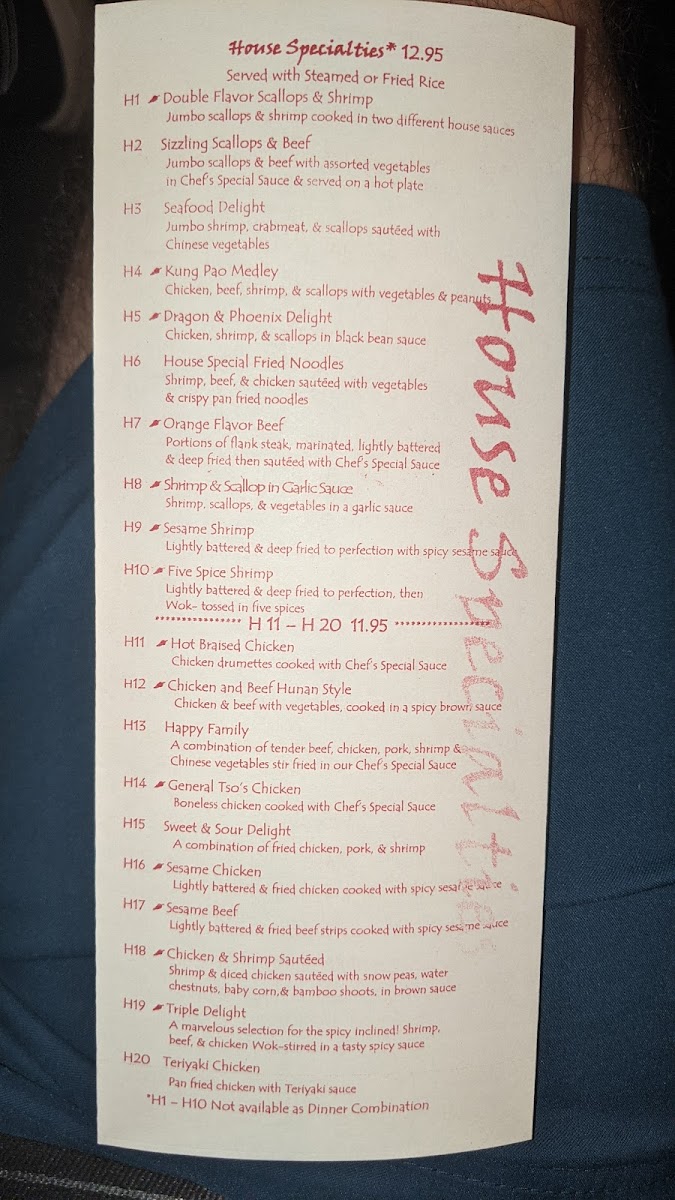 House Specialties* 12.95
Served with Steamed or Fried Rice
H1 Double Flavor Scallops & Shrimp
Jumbo scallops & shrimp cooked in two different house sauces
H2 Sizzling Scallops & Beef
Jumbo scallops & beef with assorted vegetables
in Chef's Special Sauce & served on a hot plate
H3 Seafood Delight
Jumbo shrimp, crabmeat, & scallops sautéed with
Chinese vegetables
H4 Kung Pao Medley
Chicken, beef, shrimp, & scallops with vegetables & peanuts
H5 Dragon & Phoenix Delight
Chicken, shrimp, & scallops in black bean sauce
H6 House Special Fried Noodles
Shrimp, beef, & chicken sautéed with vegetables
& crispy pan fried noodles
H7 Orange Flavor Beef
Portions of flank steak, marinated, lightly battered
& deep fried then sautéed with Chef's Special Sauce
H8 Shrimp & Scallop in Garlic Sauce
Shrimp, scallops, & vegetables in a garlic sauce
H9 Sesame Shrimp
Lightly battered & deep fried to perfection with spicy sesame sauce
H10 Five Spice Shrimp
Lightly battered & deep fried to perfection, then
Wok- tossed in five spices
**************** H 11 – H 20 11.95 *****************
H11 Hot Braised Chicken
Chicken drumettes cooked with Chef's Special Sauce
H12 Chicken and Beef Hunan Style
Chicken & beef with vegetables, cooked in a spicy brown sauce
H13 Happy Family
A combination of tender beef, chicken, pork, shrimp &
Chinese vegetables stir fried in our Chef's Special Sauce
H14 General Tso's Chicken
Boneless chicken cooked with Chef's Special Sauce
H15 Sweet & Sour Delight
A combination of fried chicken, pork, & shrimp
H16 Sesame Chicken
Lightly battered & fried chicken cooked with spicy sesame sauce
H17 Sesame Beef
Lightly battered & fried beef strips cooked with spicy sesame sauce
H18 Chicken & Shrimp Sautéed
Shrimp & diced chicken sautéed with snow peas, water
chestnuts, baby corn,& bamboo shoots, in brown sauce
H19 Triple Delight
A marvelous selection for the spicy inclined! Shrimp,
beef, & chicken Wok-stirred in a tasty spicy sauce
H20 Teriyaki Chicken
Pan fried chicken with Teriyaki sauce
*H1 – H10 Not available as Dinner Combination
House Specialties